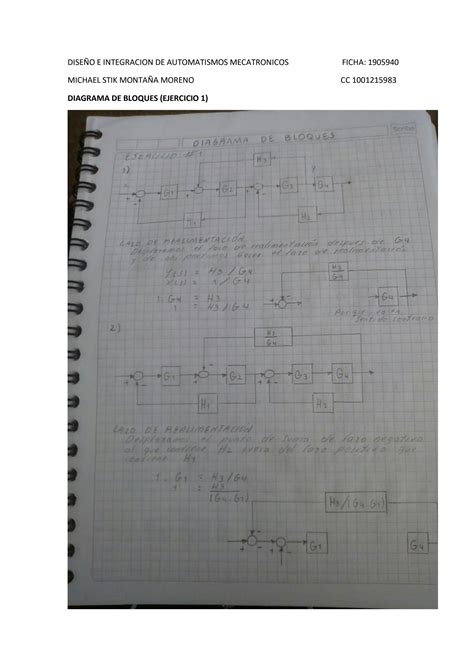 DISEÑO E INTEGRACION DE AUTOMATISMOS MECATRONICOS FICHA: 1905940
MICHAEL STIK MONTAÑA MORENO CC 1001215983
DIAGRAMA DE BLOQUES (EJERCICIO 1)
DIAGRAMA DE BLOQUES
EJERCICIO # 1
1)
H3
G1 G2 G3 G4
H1 H2
LAZO DE REALIMENTACIÓN
Desplazamos el lazo de realimentación despues de G4
lazo de realimentación
= H3/G4
= /G4
G4 = H3
= H3/G4
H3
G4
G4
Porque va en
sentido contrario
2)
H3
G4
G1 G2 G3 G4
H1 H3
LAZO DE REALIMENTACION
Desplazamos el punto de suma de lazo negativo
al que contiene H2 fuera del lazo positivo que
contiene H3
G1 = H3/G4
= H3
(G4.G1)
H3/(G4.G1)
G1 G4